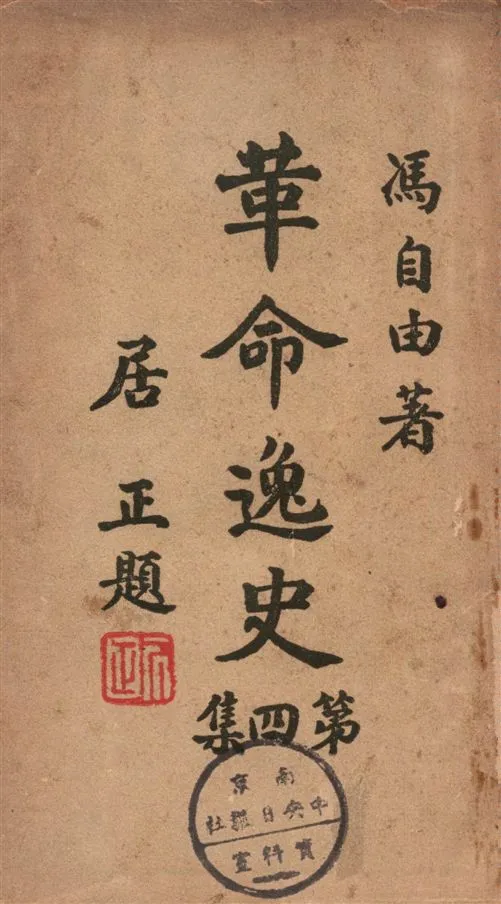 馮自由著
革命逸史
第四集
居正題
居正
南京
中央日報社
資料室